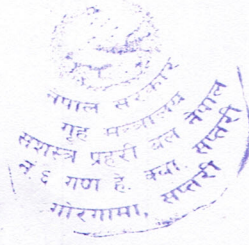 नेपाल सरकार
गृह मन्त्रालय
सशस्त्र प्रहरी बल नेपाल
नं ६ गण हे. क्वा. सप्तरी
गोरगामा, सप्तरी